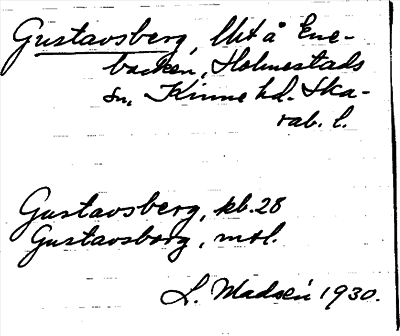 Gustavsberg, lht å Ene-
backen, Holmestads
sn, Kinne hd. Ska-
rab. l.
Gustavsberg, kb. 28
Gustavsborg, mtl.
L. Madsén 1930.